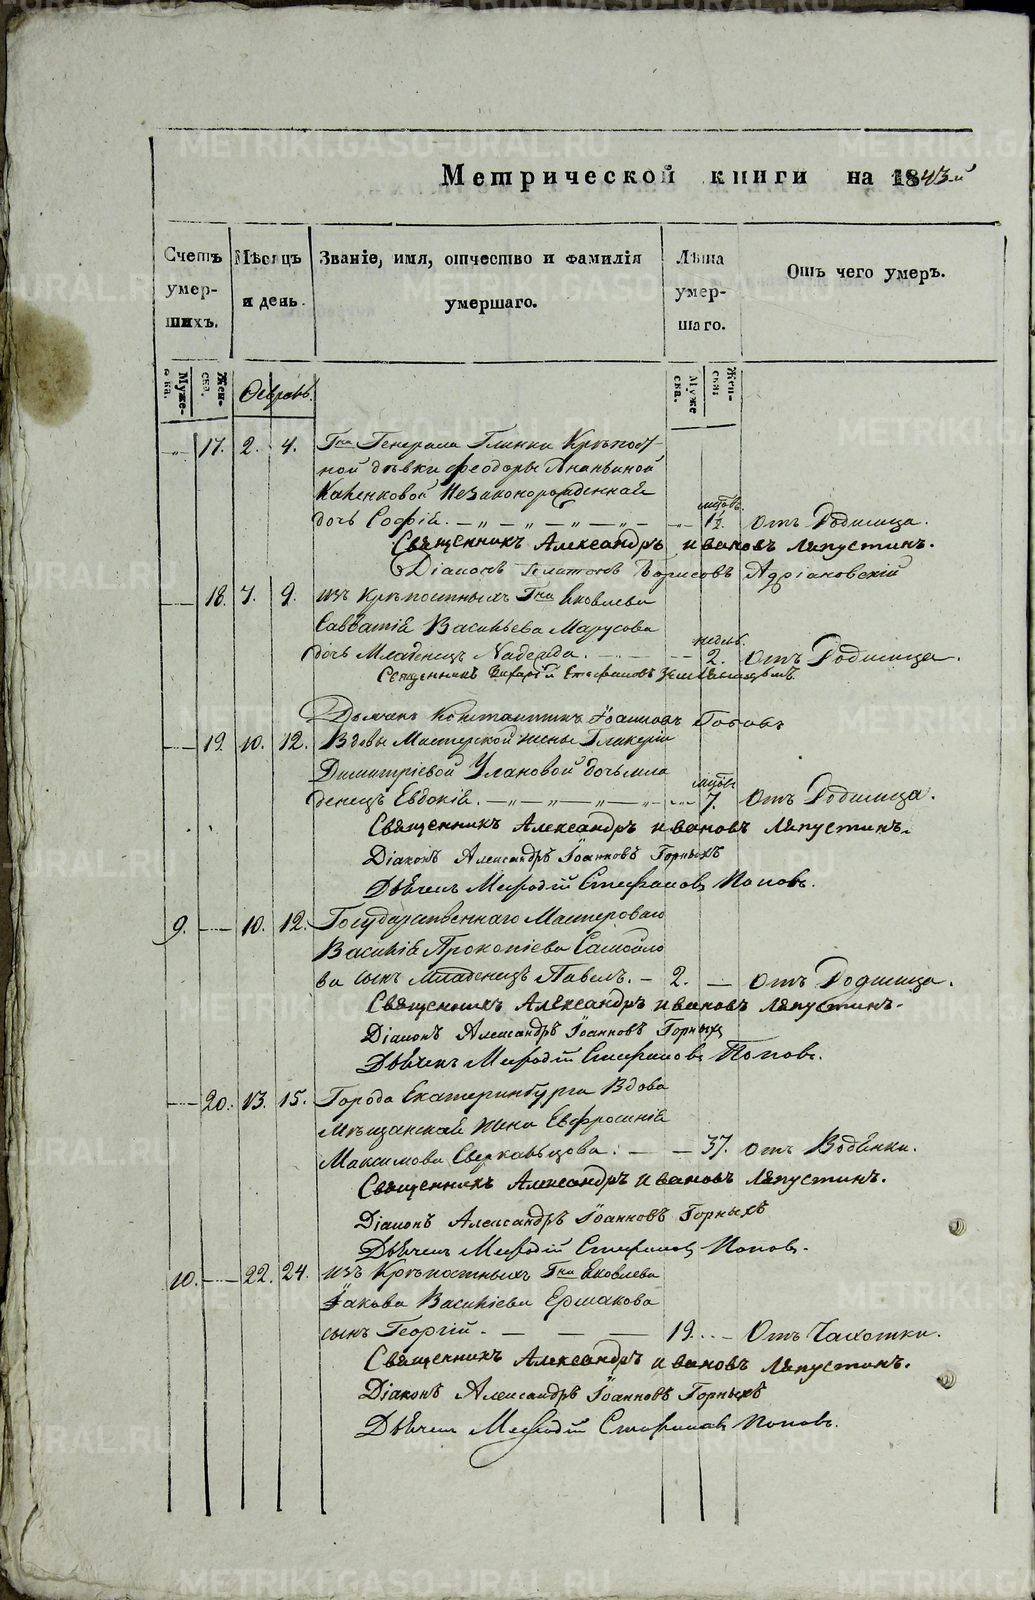 METRIKI.GASO-URAL.RU
Метрической книги на 1843-й
Счетъ умер- шихъ.
Мѣсяцъ и день.
Званіе, имя, отчество и фамилія умершаго.
Лѣта умер- шаго.
Отъ чего умеръ.
Муже- ска.
Жен- ска.
Февраль.
Муже ска.
Жен- ска.
17. 2. 4. Гна Генерала Глинки Крѣпост-
ной дѣвки Феодоры Ананьиной
Незаконорожденная
дочь Софія. 1½. отъ Родимца.
Священникъ Александръ Ивановъ Ляпустинъ.
Діаконъ Борисовъ Адріановскій
18. 7. 9. изъ Крѣпостныхъ Гна Яковлева
Савватія Васильева Марусова
недѣль.
дочь Младенецъ Надежда. 2. отъ Родимца.
Священникъ Стефановъ
Дьячекъ Константинъ Іоанновъ Поповъ
19. 10. 12. Вдовы Мастерской жены Гликеріи
Димитріевой Улановой дочь мла
денецъ Евдокія. 7. Отъ Родимца.
Священникъ Александръ Ивановъ Ляпустинъ.
Діаконъ Александръ Іоанновъ Горныхъ
Дьячекъ Мефодій Стефановъ Поповъ.
9. 10. 12. Государственнаго Мастероваго
Василія Прокопіева Самойло
ва сынъ младенецъ Павелъ. 2. Отъ Родимца.
Священникъ Александръ Ивановъ Ляпустинъ.
Діаконъ Александръ Іоанновъ Горныхъ
Дьячекъ Мефодій Стефановъ Поповъ.
20. 13. 15. Города Екатеринбурга Вдова
Мѣщанская жена Евфросинія
Максимова 37. отъ Водянки.
Священникъ Александръ Ивановъ Ляпустинъ.
Діаконъ Александръ Іоанновъ Горныхъ
Дьячекъ Мефодій Стефановъ Поповъ.
10. 22. 24. изъ Крѣпостныхъ Гна Яковлева
Іакова Василіева Ермакова
сынъ Георгій. 19. Отъ Чахотки.
Священникъ Александръ Ивановъ Ляпустинъ.
Діаконъ Александръ Іоанновъ Горныхъ
Дьячекъ Мефодій Стефановъ Поповъ.